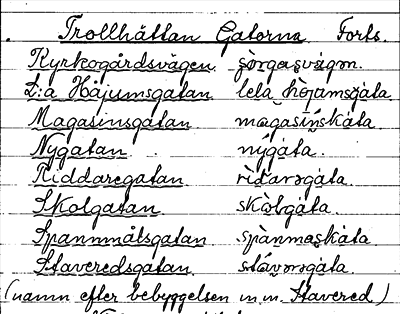 Trollhättan Gatorna Forts.
Kyrkogårdsvägen şörgaşvägən.
L:a Håjumsgatan lela håjamsgáta
Magasinsgatan magasíńskáta
Nygatan nýgáta.
Riddaregatan rìdarəgáta.
Skolgatan skòlgáta
Spannmålsgatan spànmaşkáta
Staveredsgatan stávərəgáta.
(namn efter bebyggelsen m.m. Stavered.)